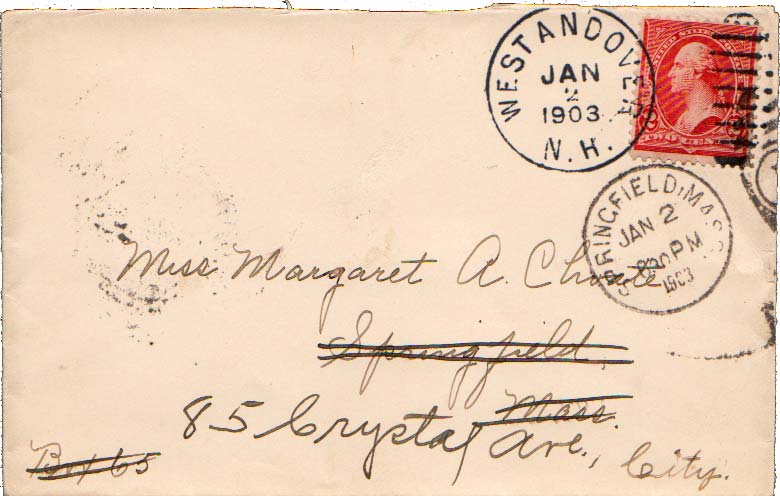 WEST ANDOVER
JAN
2
1903
N.H.
TWO CENTS
SPRINGFIELD, MASS.
JAN 2
830PM
1903
Miss Margaret A.
Springfield
Mass.
85 Crystal Ave.,
City.
Box 65